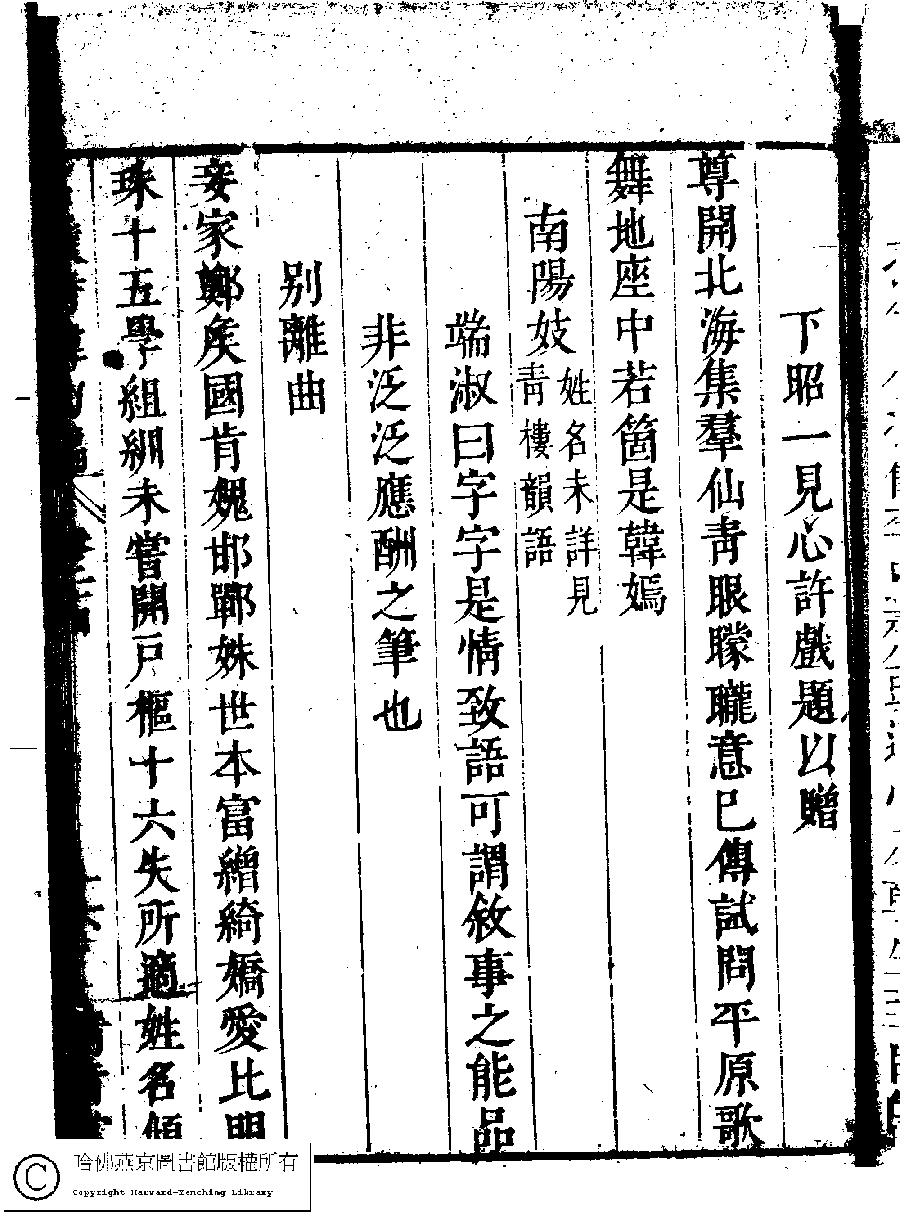 下昭一見心許戲題以贈
尊開北海集羣仙青眼矇矓意已傳試問平原歌
舞地座中若箇是韓嫣
南陽妓姓名未詳見
青樓韻語
端淑曰字字是情致語可謂敘事之能品
非泛泛應酬之筆也
别離曲
妾家鄭矦國肯媿邯鄲姝世本富繒綺嬌愛比明
珠十五學組紃未嘗開戸樞十六失所適姓名傾
哈佛燕京圖書館版權所有
Copyright Harvard-Yenching Library